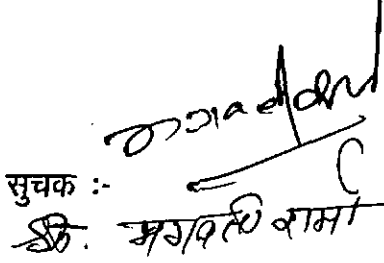 सुचक :-
डॉ. भगवती शर्मा